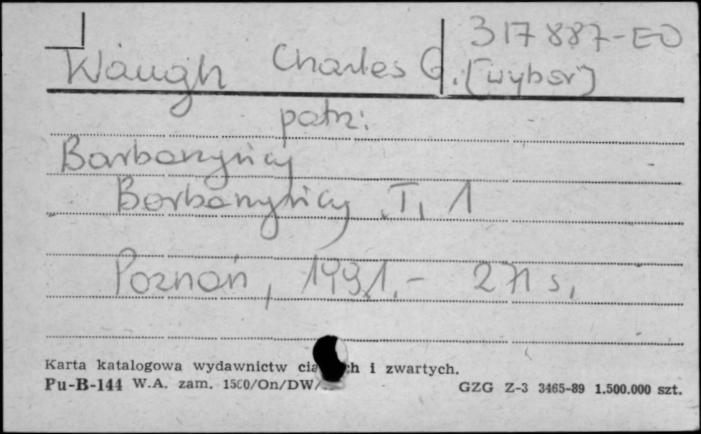 317887-EO
Waugh Charles G. [wybór]
patrz:
Barbarzyńcy
Barbarzyńcy. T. 1
Poznań, 1991. - 271 s.
Karta katalogowa wydawnictw h i zwartych.
Pu-B-144 W.A. zam. 1500/On/DW/ GZG Z-3 3465-89 1.500.000 szt.